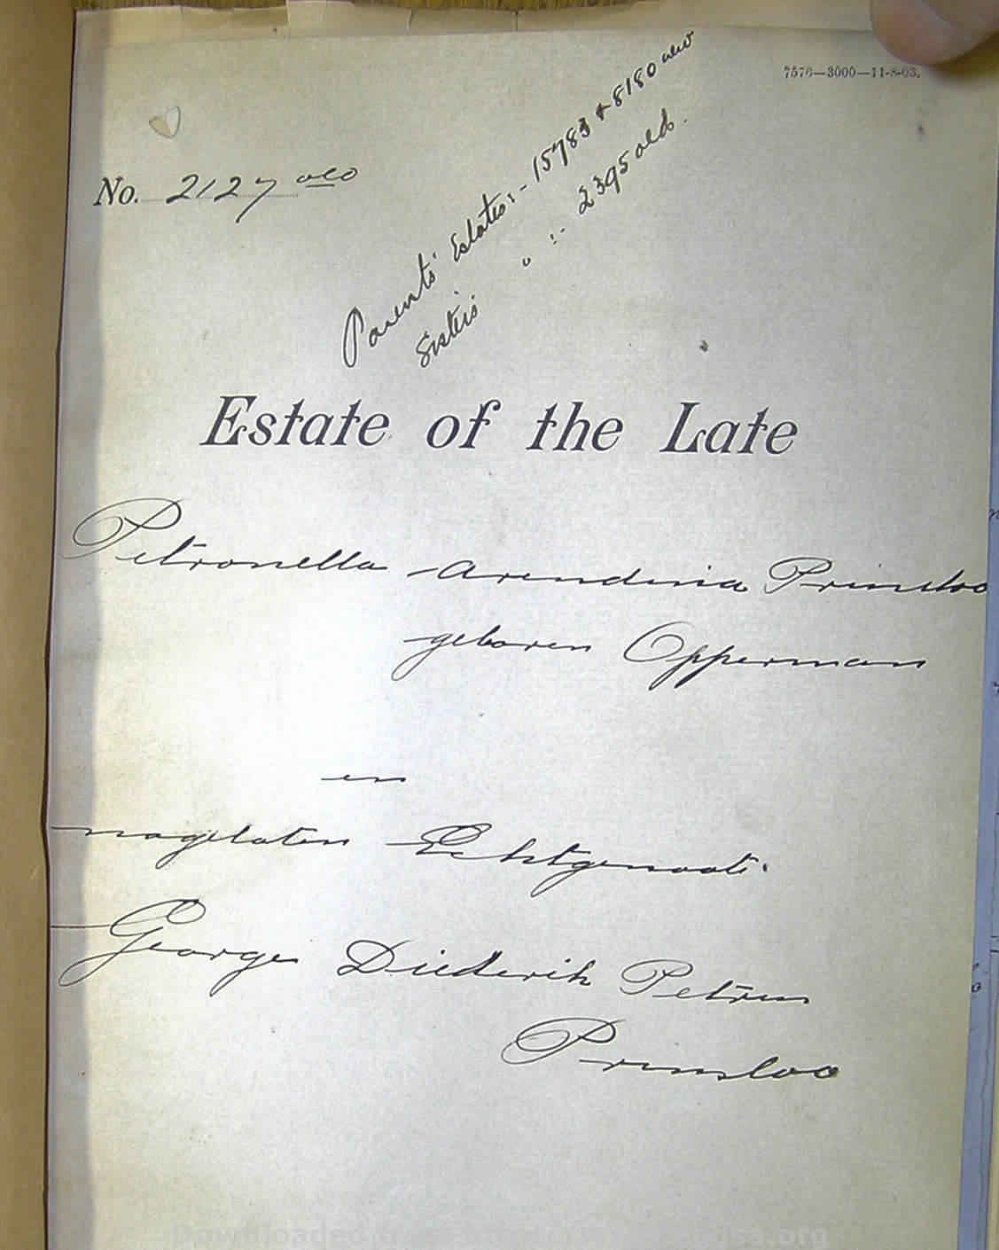 7576—3000—11-8-03.
No. 2127 old
Parents' Estates:- 15783 & 8180 new
Sisters' " :- 2395 old.
Estate of the Late
Petronella Arendina Prinsloo
geboren Opperman
en
nagelaten Echtgenoot.
George Diederik Petrus
Prinsloo
Downloaded